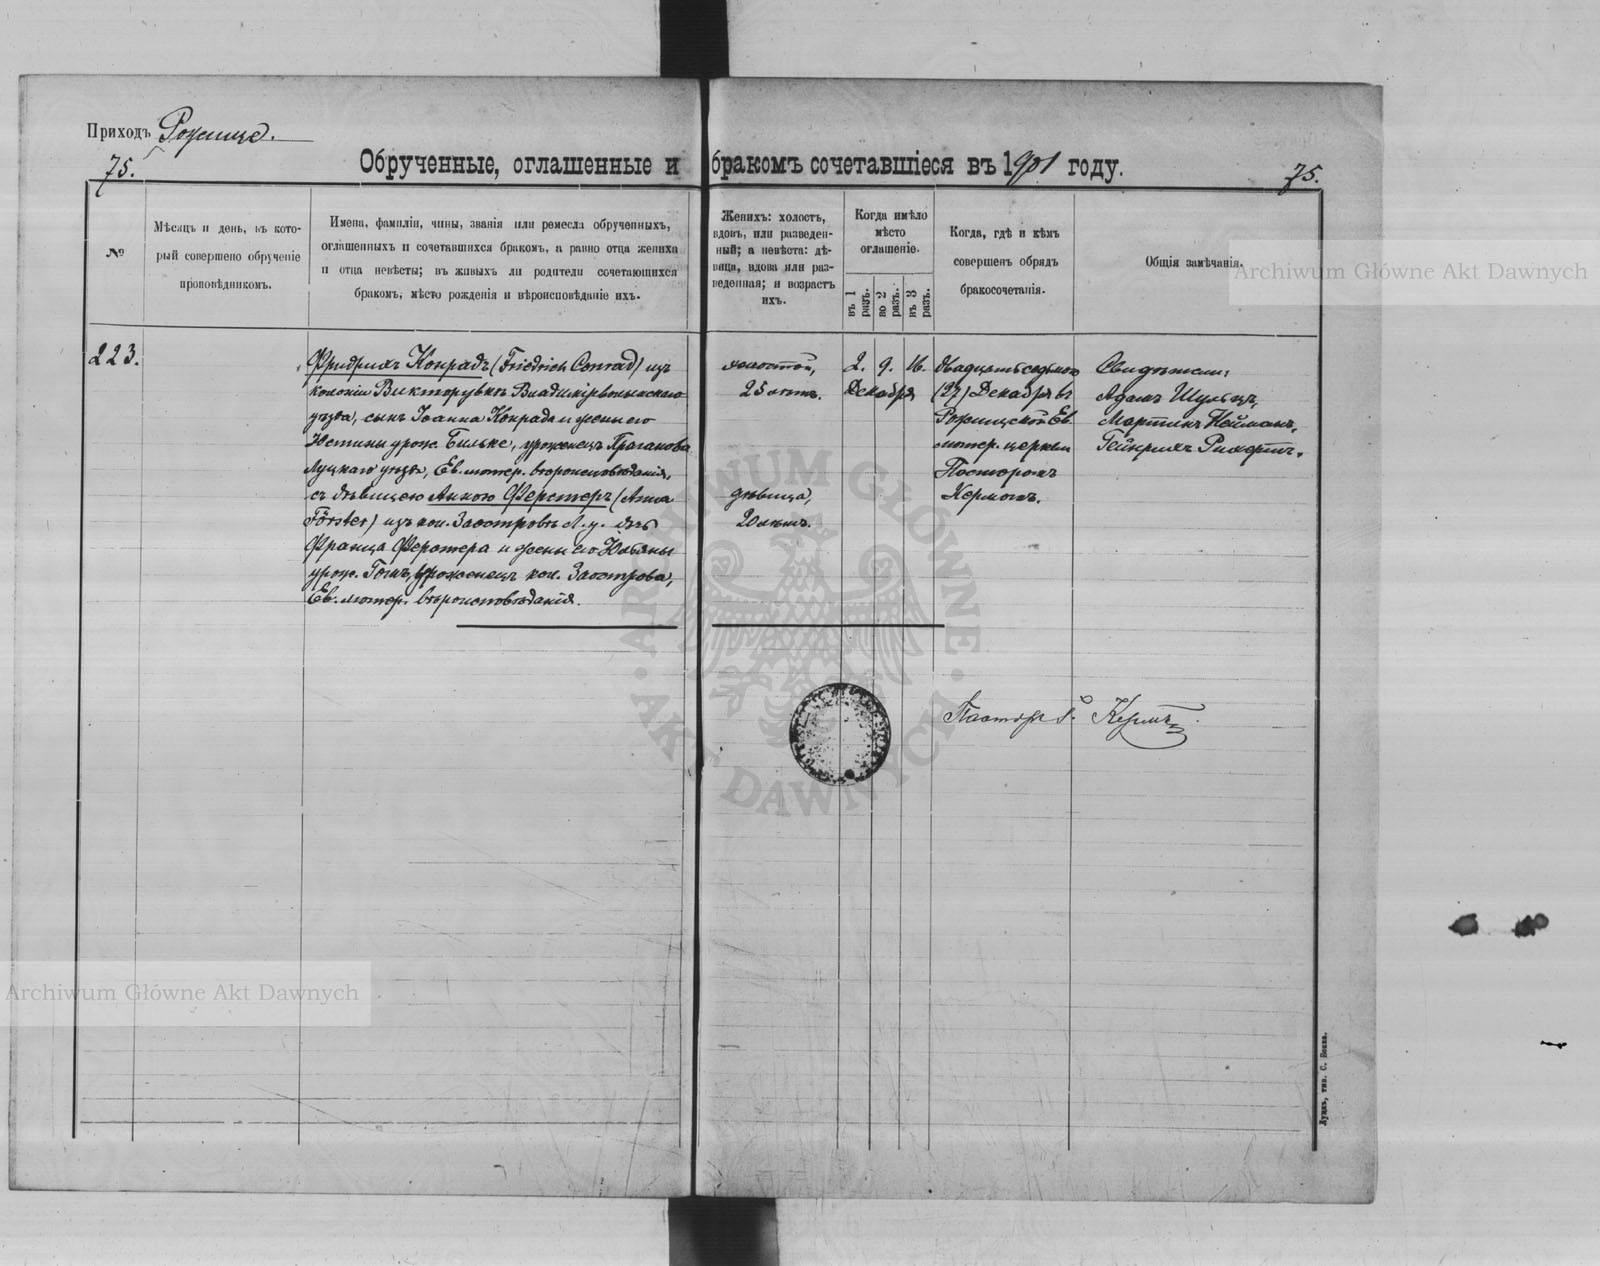 Приходъ Рожище.
75.
Обрученные, оглашенные и бракомъ сочетавшіеся въ 1901 году.
75.
№
Мѣсяцъ и день, въ кото-
рый совершено обрученіе
проповѣдникомъ.
Имена, фамиліи, чины, званія или ремесла обрученныхъ,
оглашенныхъ и сочетавшихся бракомъ, а равно отца жениха
и отца невѣсты; въ живыхъ ли родители сочетающихся
бракомъ, мѣсто рожденія и вѣроисповѣданіе ихъ.
Женихъ: холостъ,
вдовъ, или разведен-
ный; а невѣста: дѣ-
вица, вдова или раз-
веденная; и возрастъ
ихъ.
Когда имѣло
мѣсто
оглашеніе.
въ 1
разъ.
во 2
разъ.
въ 3
разъ.
Когда, гдѣ и кѣмъ
совершенъ обрядъ
бракосочетанія.
Общія замѣчанія.
Archiwum Główne Akt Dawnych
223.
Фридрихъ Конрадъ (Friedrich Conrad) изъ
колоніи Викторувкъ Владимірволынскаго
уѣзда, сынъ Іоанна Конрада и жены его
Юстины урож. Бильке, уроженецъ
Луцкаго уѣзда, Ев. лютер. вѣроисповѣданія,
съ дѣвицею Анною Ферстеръ (Anna
Förster) изъ кол. Заостровъ Л. у. дочь
Франца Ферстера и жены его Юліяны
урож. уроженецъ кол. Заострова,
Ев. лютер. вѣроисповѣданія.
холостой,
25 лѣтъ.
дѣвица,
20 лѣтъ.
2. 9. 16.
Декабря
Двадцать седьмого
(27) Декабря въ
Рожищской Ев.
лютер. церкви
Пасторомъ
Кермомъ.
Свидѣтели:
Адамъ Шульцъ,
Мартинъ Нейманъ,
Гейнрихъ Рихертъ.
Пасторъ Кермъ
ARCHIWUM GŁÓWNE
AKT DAWNYCH
Archiwum Główne Akt Dawnych
Луцкъ, тип. С. Бокка.